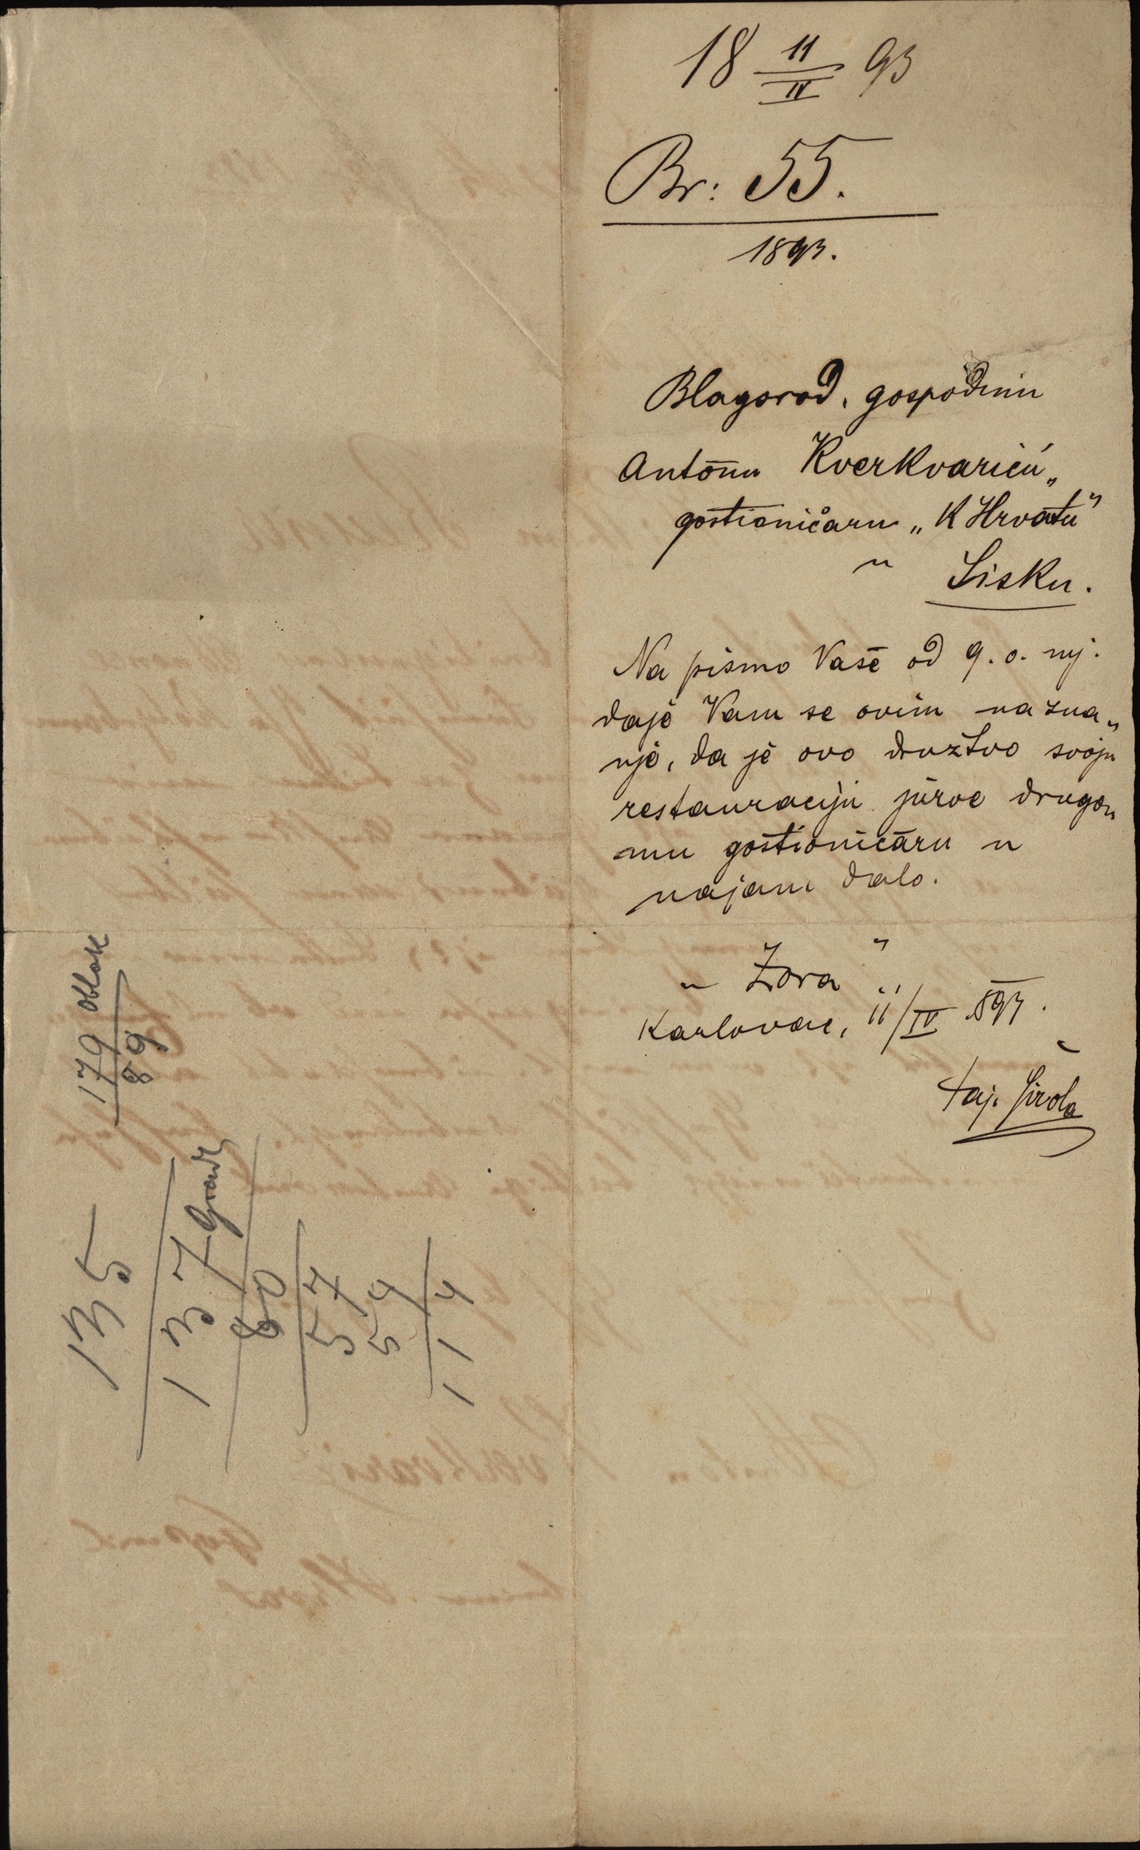 18 11/IV 93
Br: 55.
1893.
Blagorod. gospodinu
Antonu Kverkvariću
gostioničaru „K Hrvatu"
u Sisku.
Na pismo Vaše od 9. o. mj.
daje Vam se ovim na zna„
nje, da je ovo družtvo svoju
restauraciju jurve drugo„
mu gostioničaru u
najam dalo.
„Zora"
Karlovac, 11/IV 893.
taj. Širola
179 oblak
89
135
137 Grad
80
57
54
114